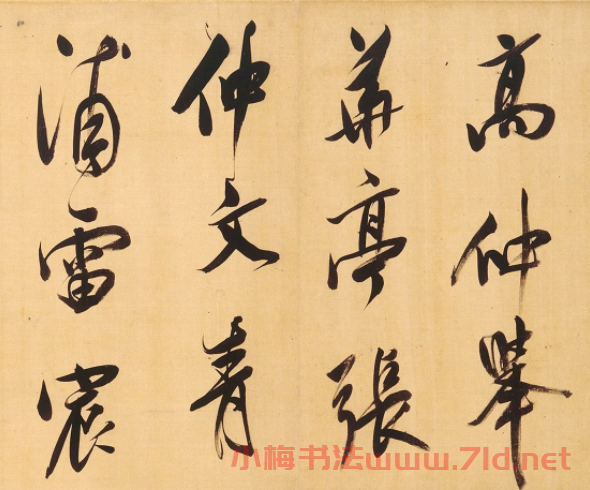 高仲舉
華亭張
仲文青
浦雷宸
小梅书法www.7ld.net